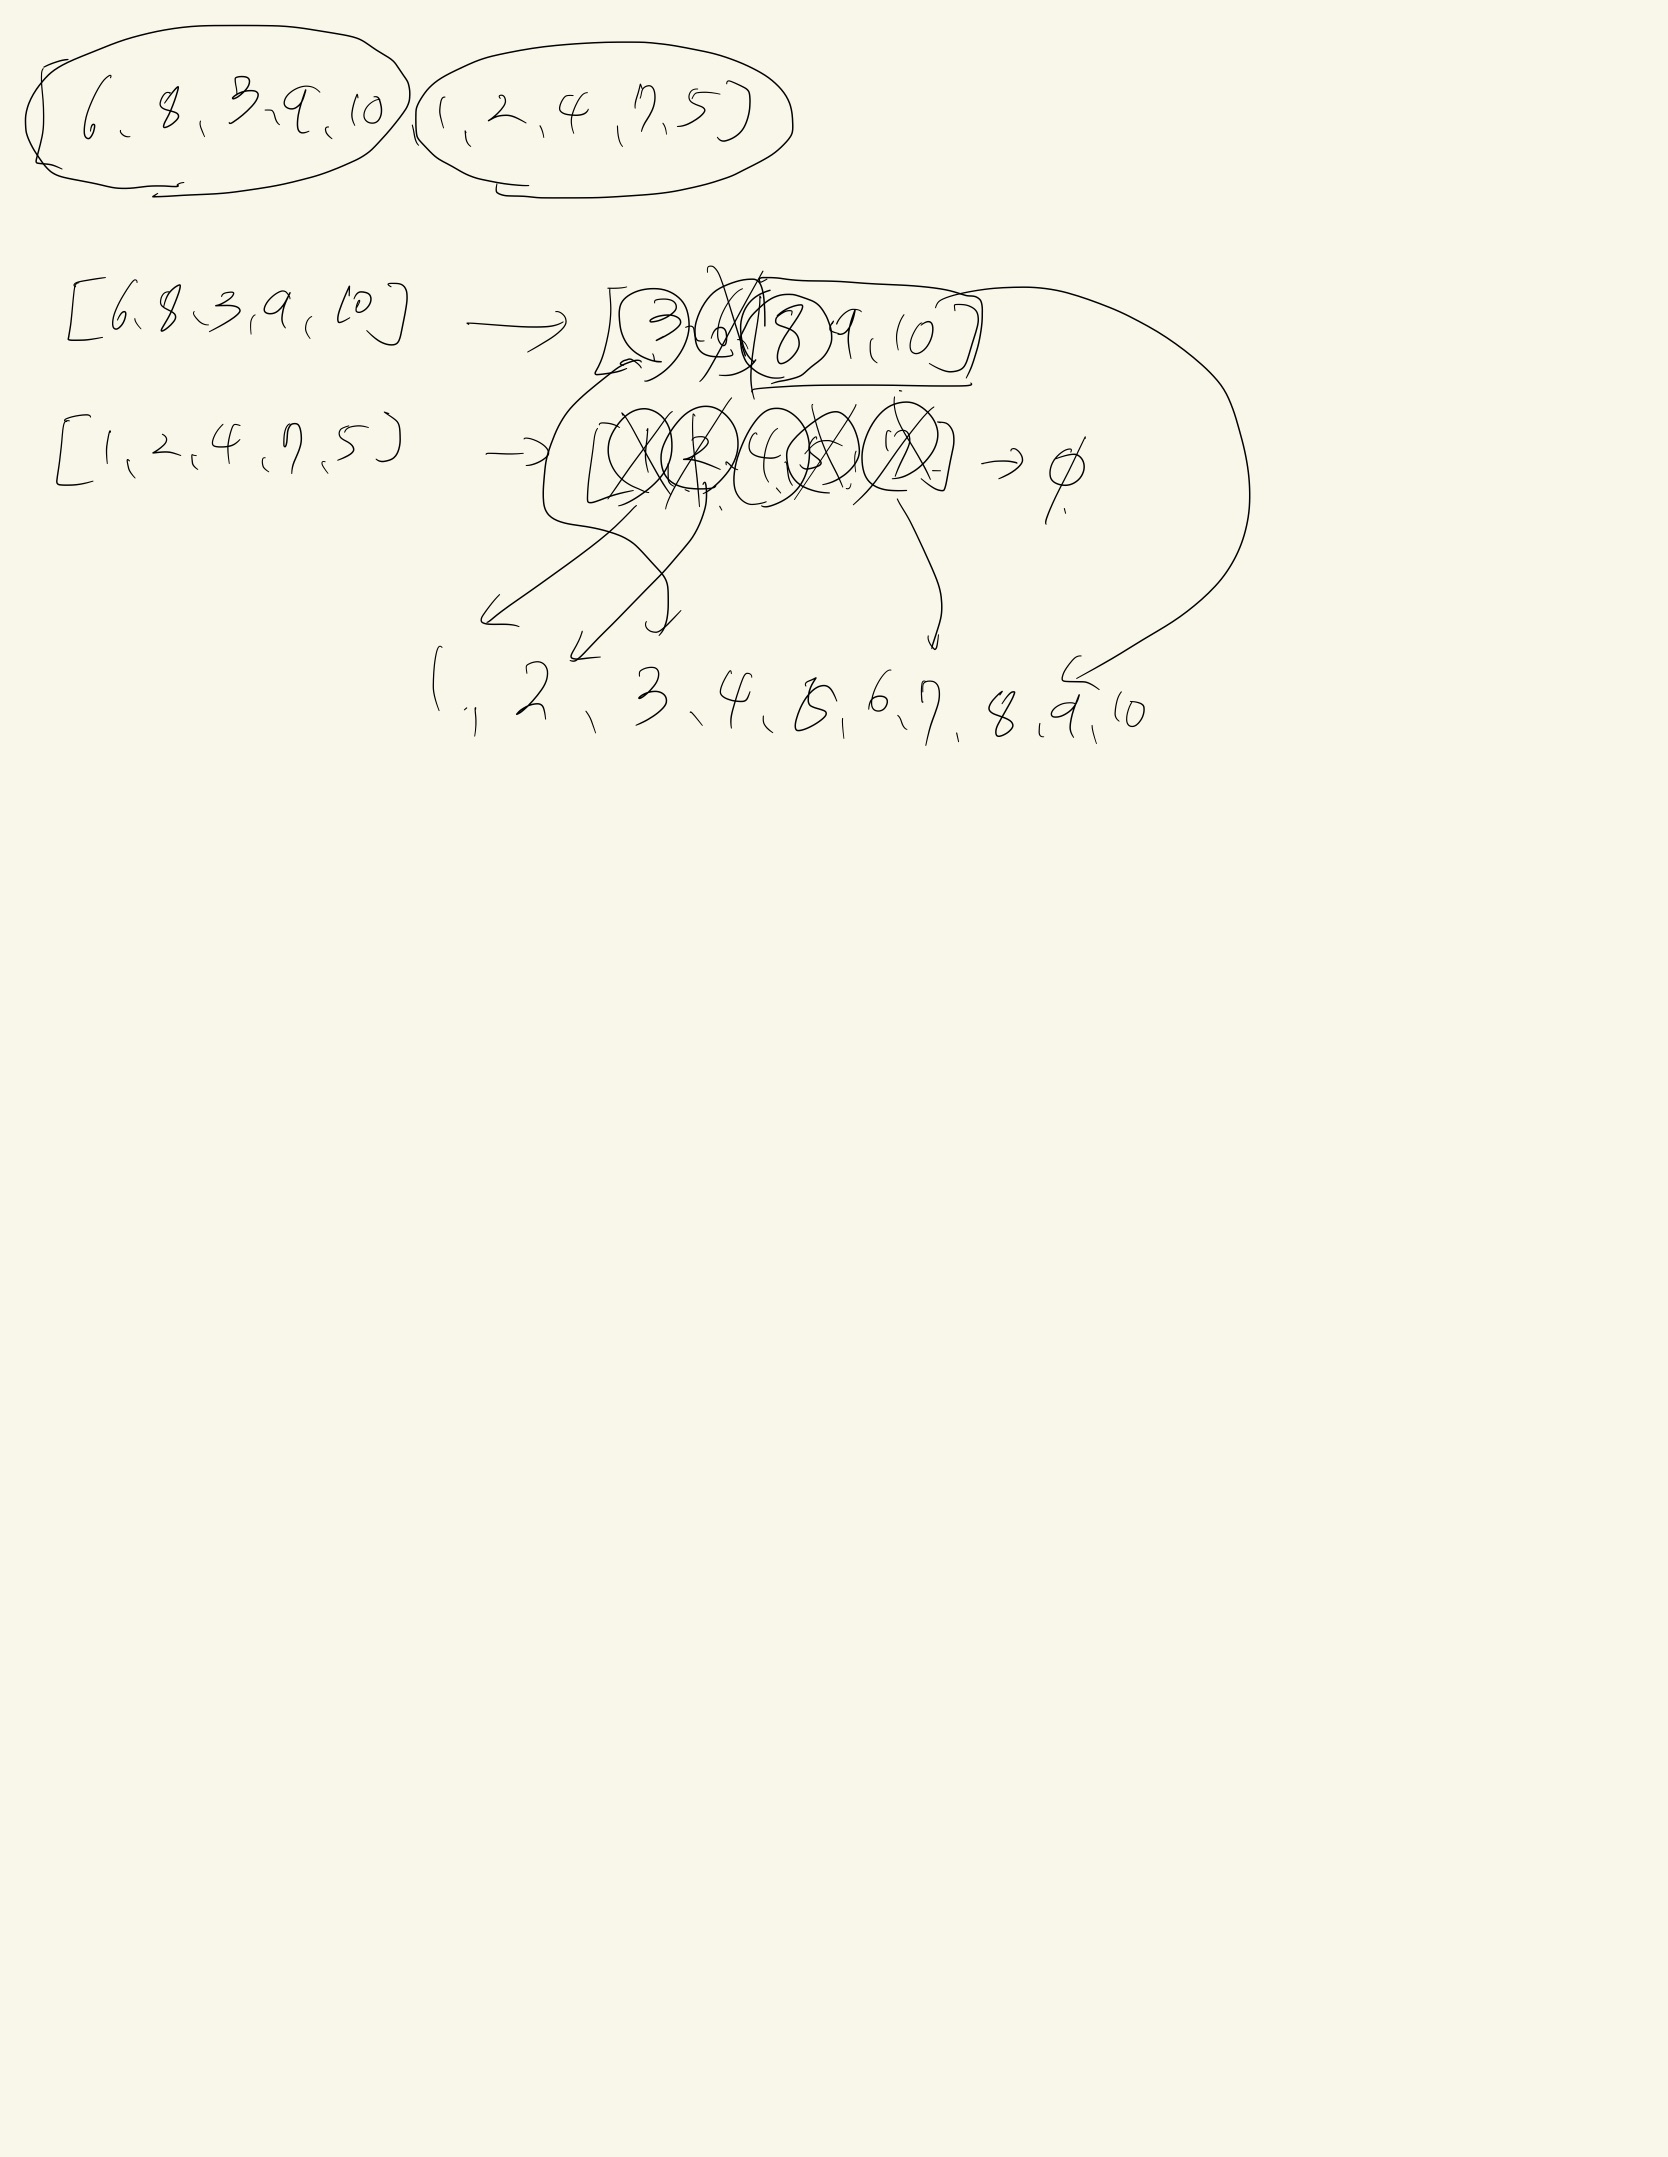 [6, 8, 3, 9, 10, 1, 2, 4, 7, 5]
[6, 8, 3, 9, 10] → [3, 6, 8, 9, 10]
[1, 2, 4, 7, 5] → [1, 2, 4, 5, 7] → ϕ
1, 2, 3, 4, 5, 6, 7, 8, 9, 10